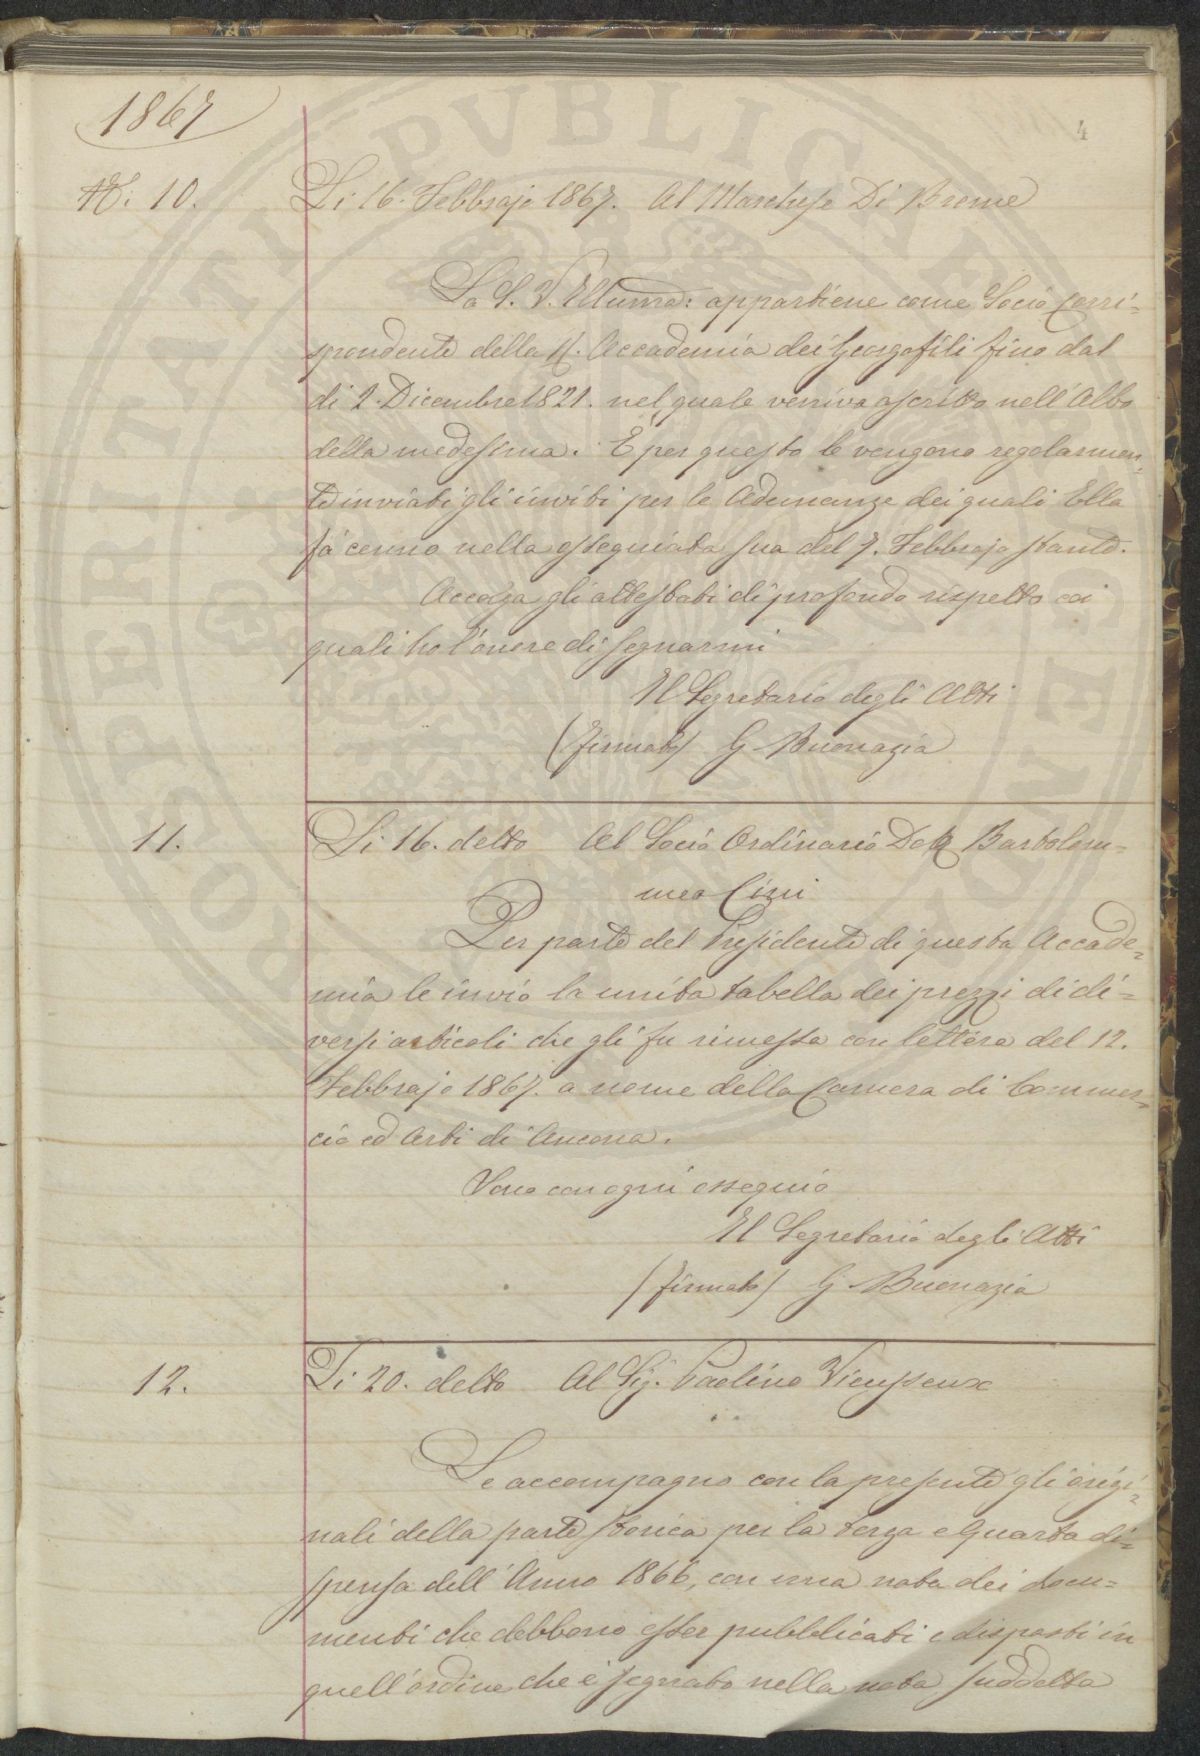 1867
4
N: 10. Li 16. Febbrajo 1867. Al Marchese Di Breme
La S. V. Illuma: appartiene come Socio Corri=
spondente della R. Accademia dei Georgofili fino dal
di 2. Dicembre 1821. nel quale veniva ascritto nell'Albo
della medesima. E per questo le vengono regolarmen=
te inviati gli inviti per le Adunanze dei quali Ella
fà cenno nella ossequiata sua del 7. Febbrajo stante.
Accolga gli attestati di profondo rispetto coi
quali ho l'onore di segnarmi
Il Segretario degli Atti
(Firmato) G. Buonazia
11. Li 16. detto Al Socio Ordinario Dott Bartolom=
meo Cini
Per parte del Presidente di questa Accade=
mia le invio la unita tabella dei prezzi di di=
versi articoli che gli fu rimessa con lettera del 12.
Febbrajo 1867. a nome della Camera di Commer=
cio ed Arti di Ancona.
Sono con ogni ossequio
Il Segretario degli Atti
(firmato) G. Buonazia
12. Li 20. detto Al Sig. Paolino Vieusseux
Le accompagno con la presente gli origi=
nali della parte storica per la terza e quarta di=
spensa dell'Anno 1866, con una nota dei docu=
menti che debbono esser pubblicati e disposti in
quell'ordine che è segnato nella nota suddetta
PROSPERITATI PVBLICAE AVGENDAE